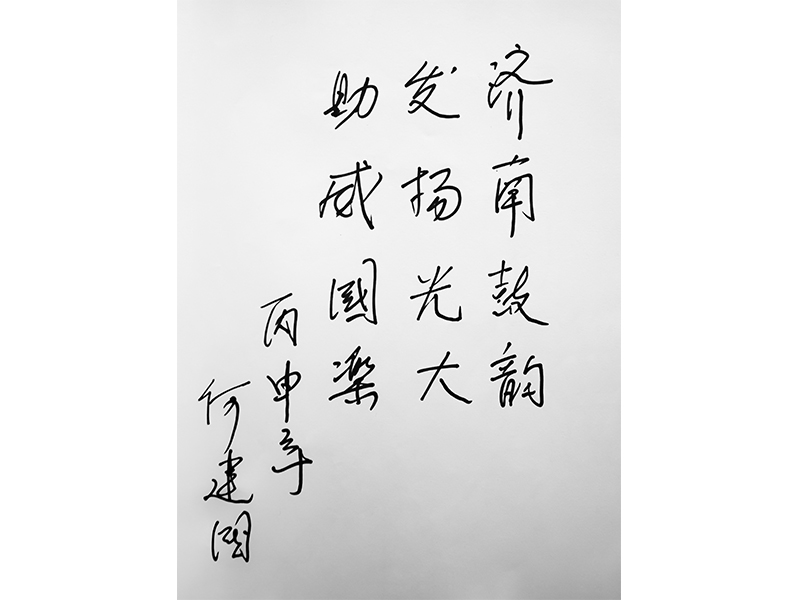 济南鼓韵
发扬光大
助威國樂
丙申年
何建国